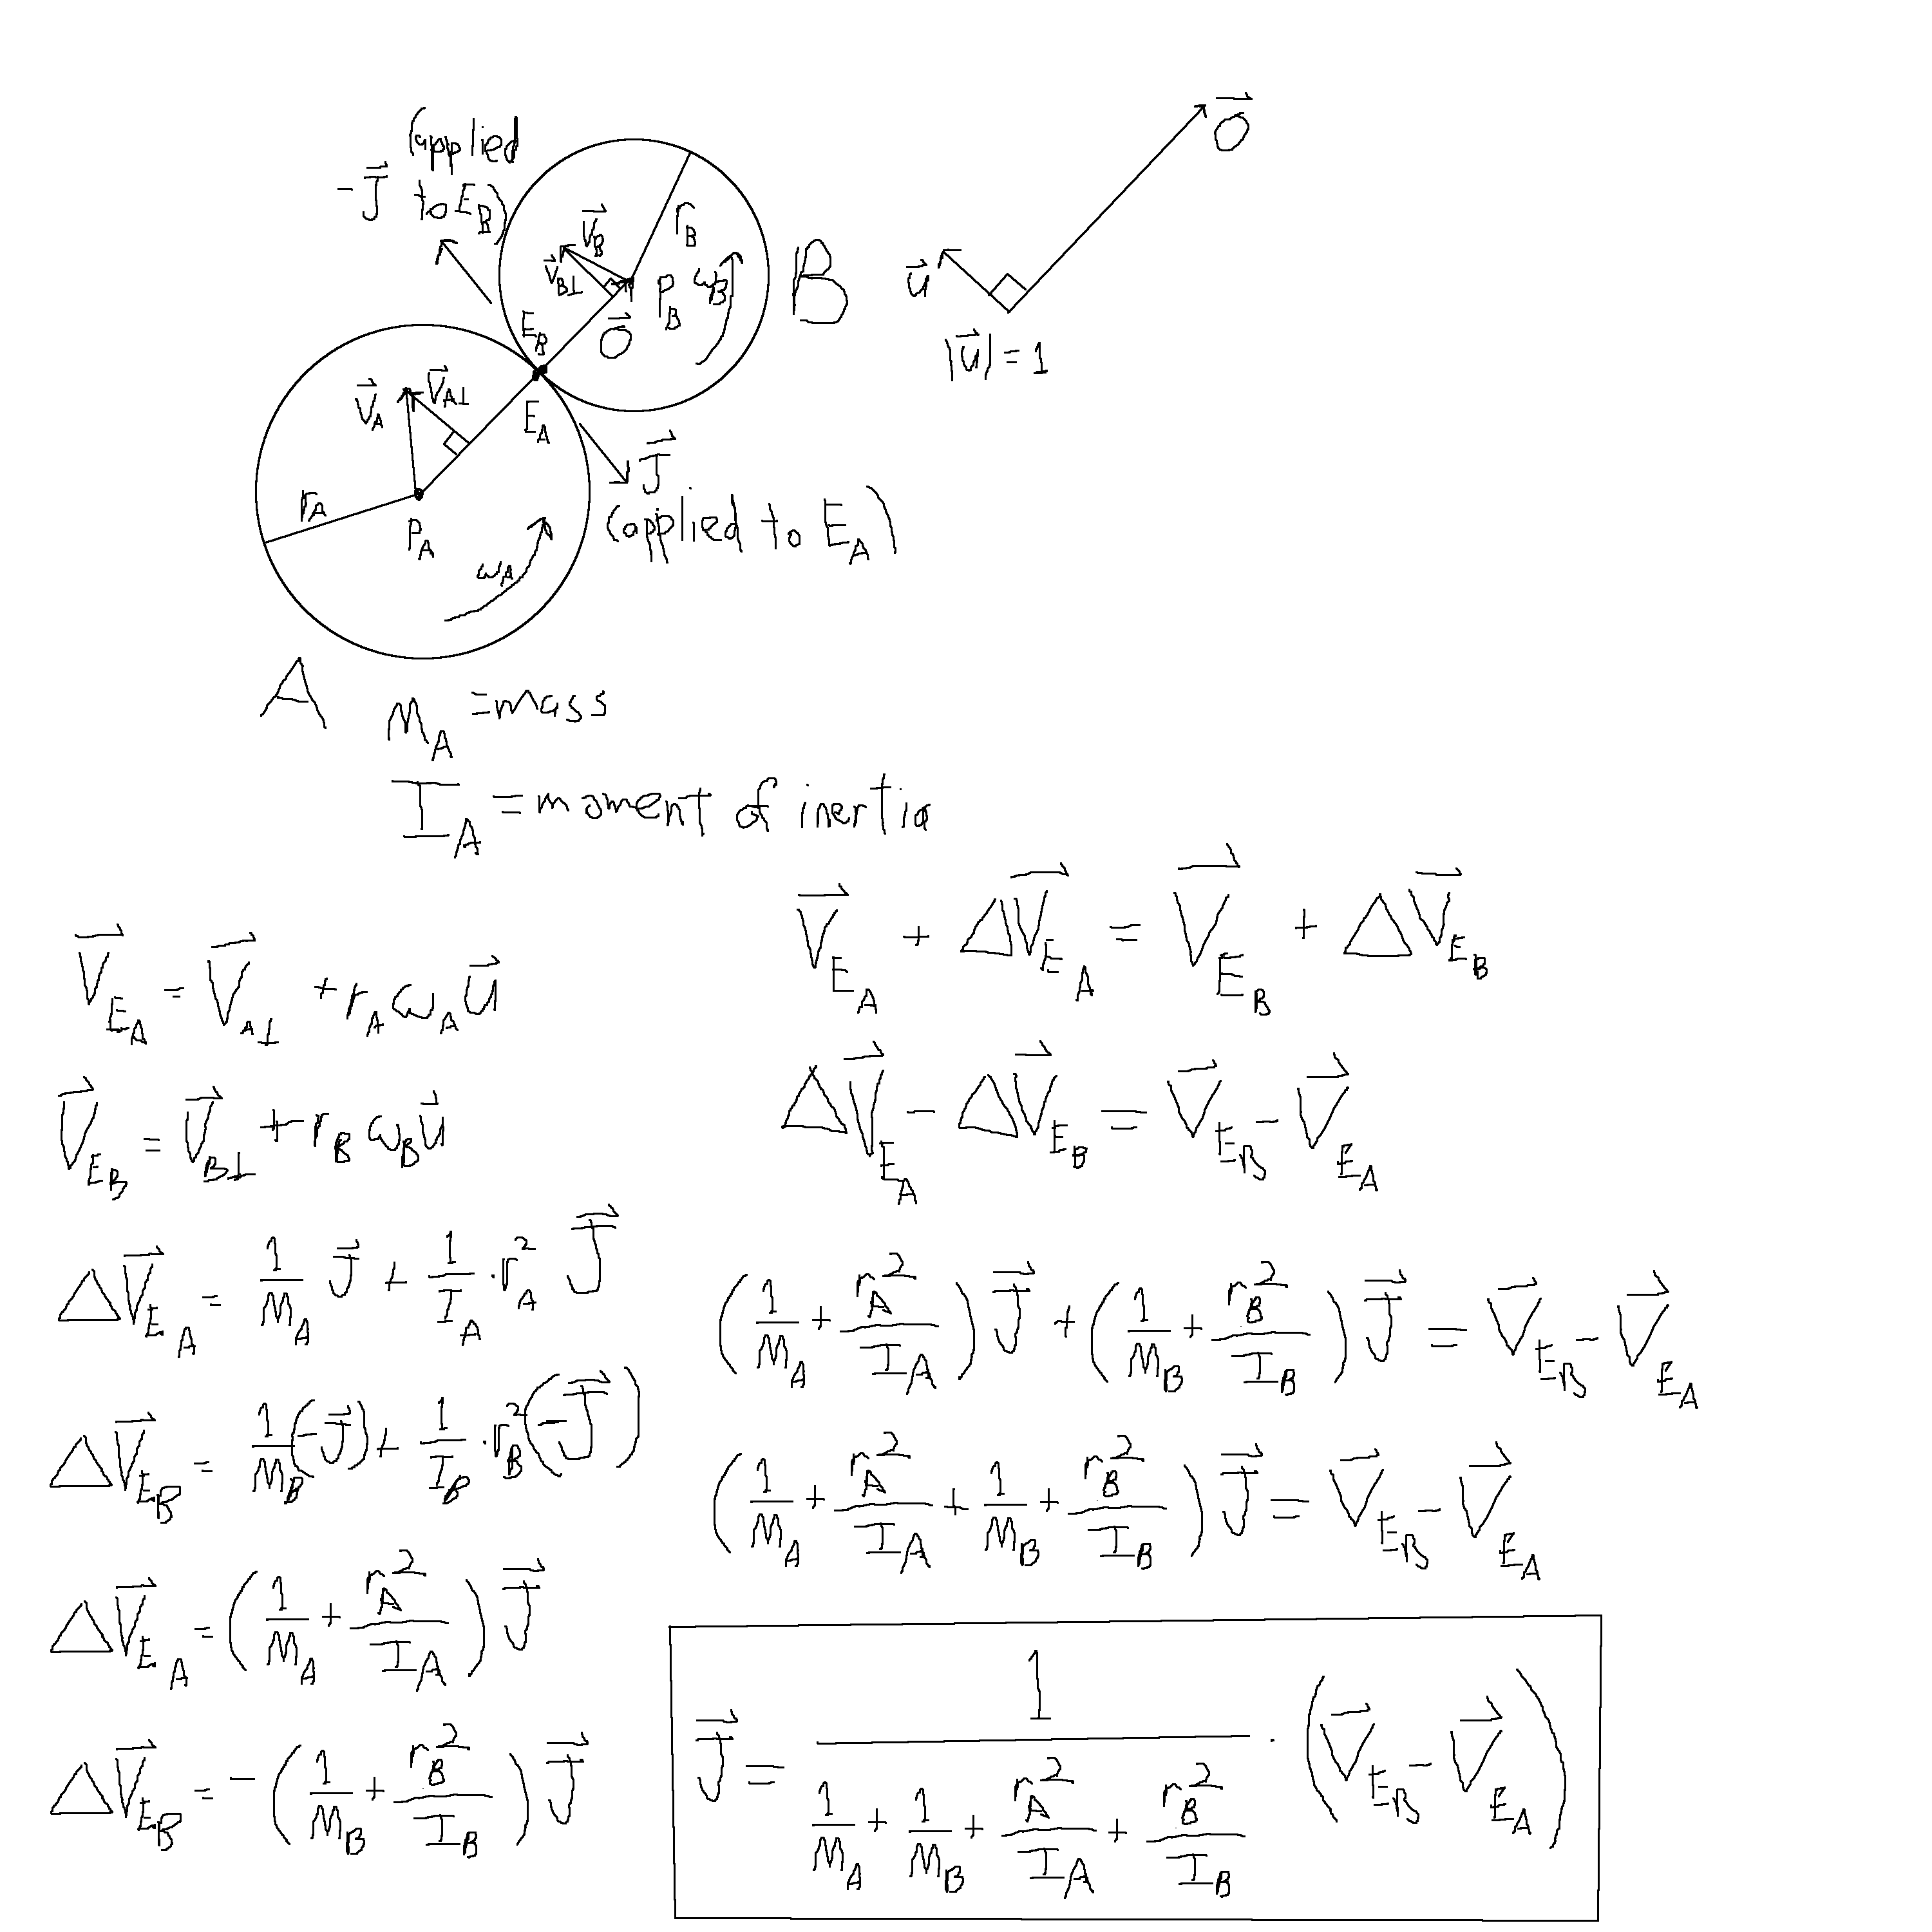 (applied
-J⃗ to E_B)
V⃗_B
r_B
V⃗_B⊥
P_B
ω_B
B
E_B
O⃗
V⃗_A
V⃗_A⊥
E_A
r_A
P_A
ω_A
J⃗
(applied to E_A)
O⃗
u⃗
|u⃗| = 1
A
M_A = mass
I_A = moment of inertia
V⃗_E_A = V⃗_A⊥ + r_A ω_A u⃗
V⃗_E_B = V⃗_B⊥ + r_B ω_B u⃗
ΔV⃗_E_A = 1/M_A J⃗ + 1/I_A · r_A^2 J⃗
ΔV⃗_E_B = 1/M_B (-J⃗) + 1/I_B · r_B^2 (-J⃗)
ΔV⃗_E_A = (1/M_A + r_A^2/I_A) J⃗
ΔV⃗_E_B = -(1/M_B + r_B^2/I_B) J⃗
V⃗_E_A + ΔV⃗_E_A = V⃗_E_B + ΔV⃗_E_B
ΔV⃗_E_A - ΔV⃗_E_B = V⃗_E_B - V⃗_E_A
(1/M_A + r_A^2/I_A) J⃗ + (1/M_B + r_B^2/I_B) J⃗ = V⃗_E_B - V⃗_E_A
(1/M_A + r_A^2/I_A + 1/M_B + r_B^2/I_B) J⃗ = V⃗_E_B - V⃗_E_A
J⃗ = 1/(1/M_A + 1/M_B + r_A^2/I_A + r_B^2/I_B) · (V⃗_E_B - V⃗_E_A)